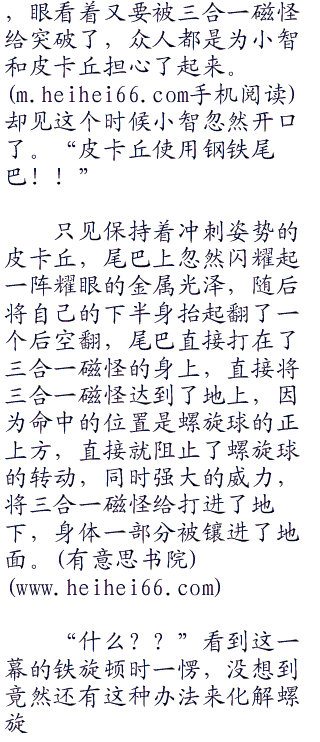 ，眼看着又要被三合一磁怪
给突破了，众人都是为小智
和皮卡丘担心了起来。
(m.heihei66.com手机阅读)
却见这个时候小智忽然开口
了。“皮卡丘使用钢铁尾
巴！！”
只见保持着冲刺姿势的
皮卡丘，尾巴上忽然闪耀起
一阵耀眼的金属光泽，随后
将自己的下半身抬起翻了一
个后空翻，尾巴直接打在了
三合一磁怪的身上，直接将
三合一磁怪达到了地上，因
为命中的位置是螺旋球的正
上方，直接就阻止了螺旋球
的转动，同时强大的威力，
将三合一磁怪给打进了地
下，身体一部分被镶进了地
面。(有意思书院)
(www.heihei66.com)
“什么？？”看到这一
幕的铁旋顿时一愣，没想到
竟然还有这种办法来化解螺
旋